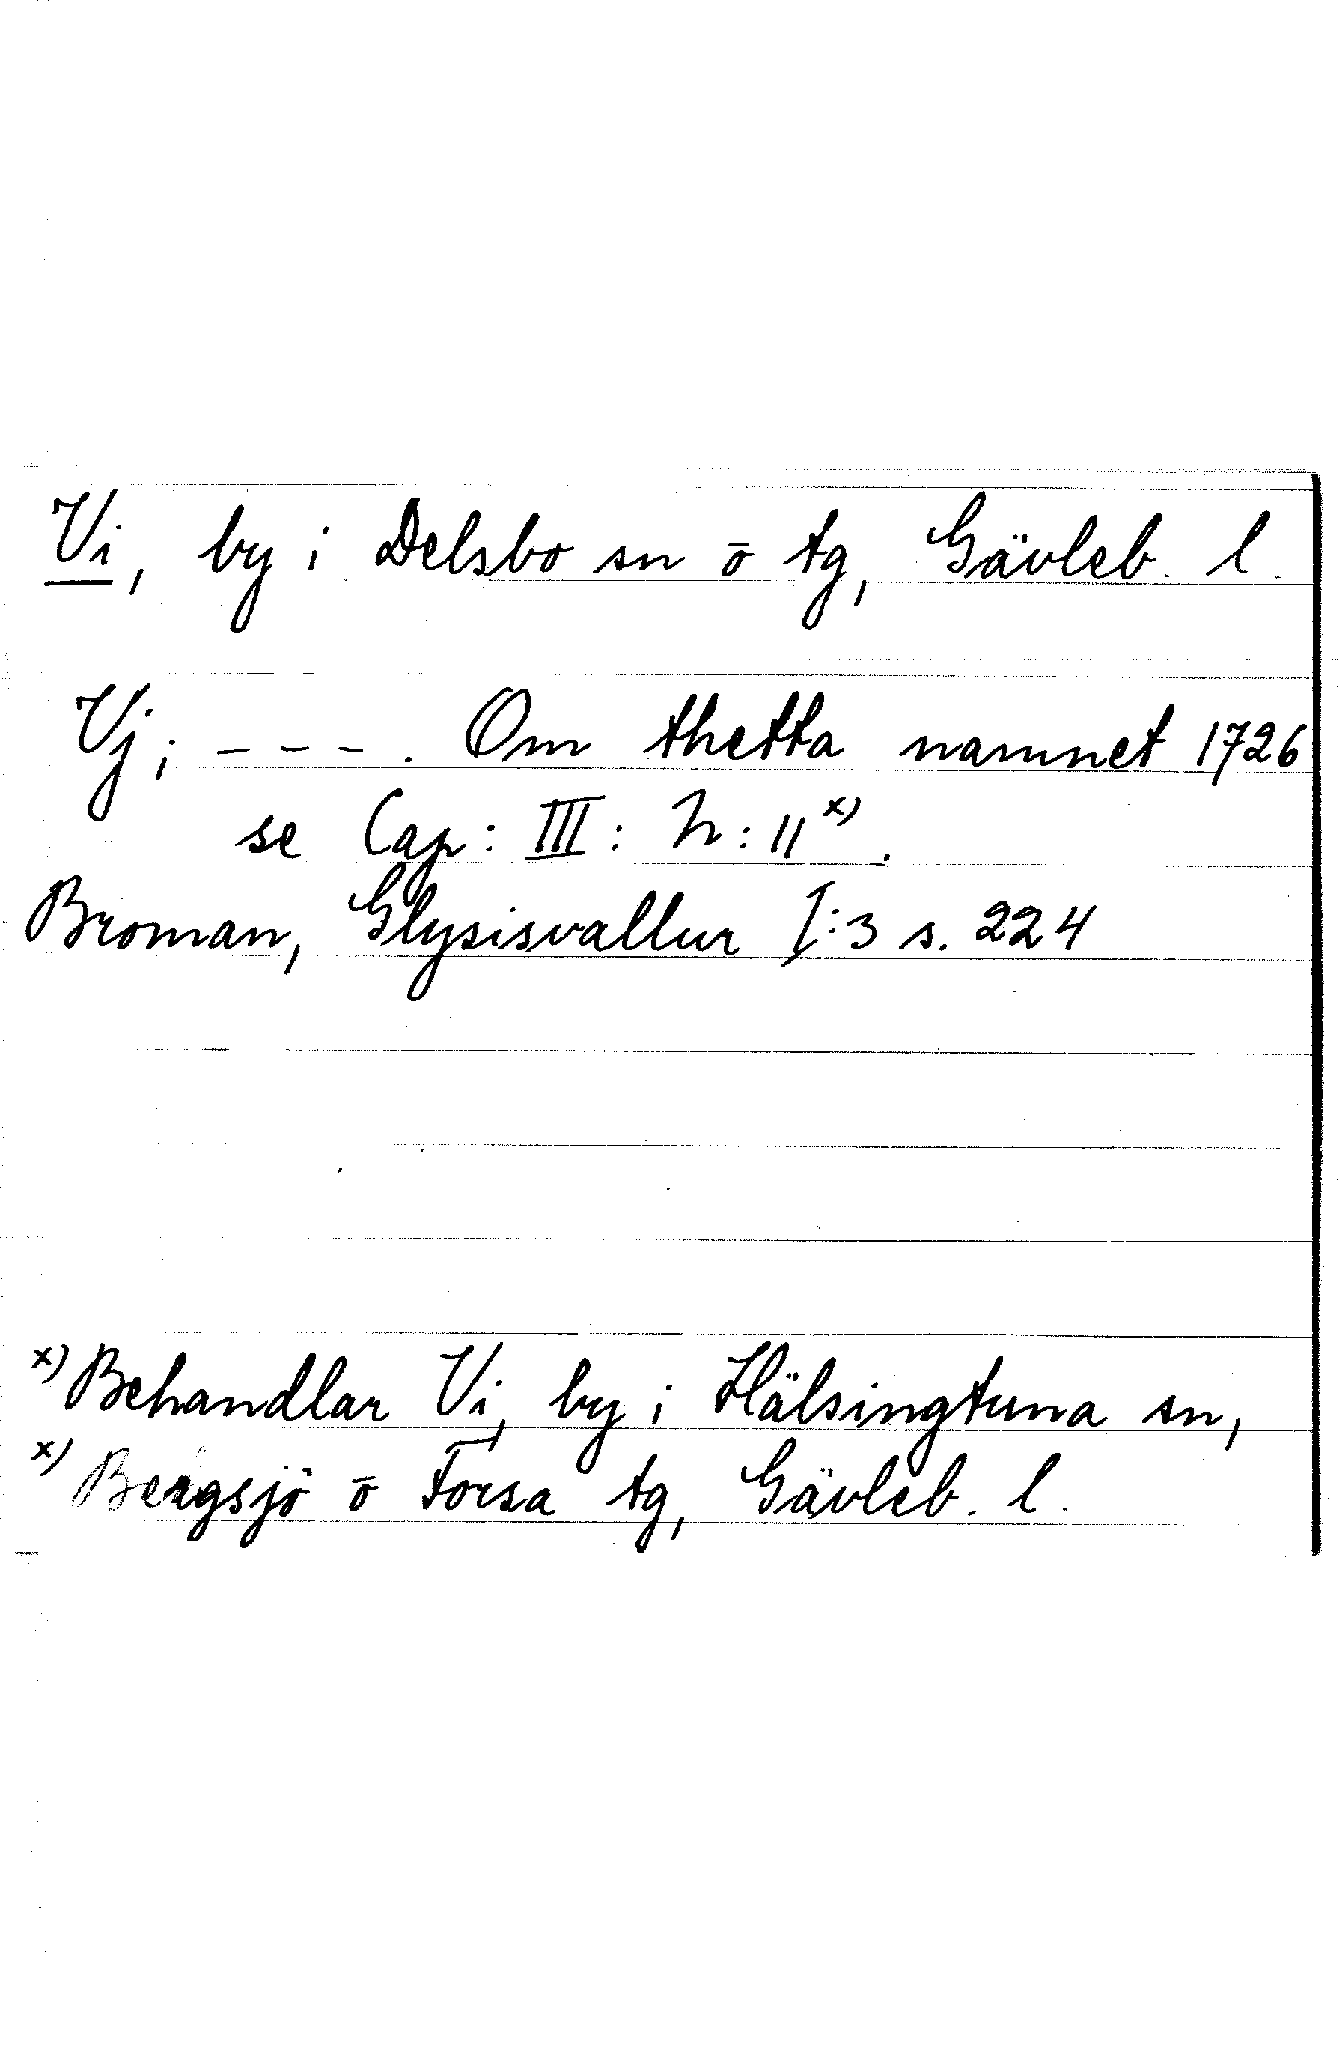 Vi, by i Delsbo sn o tg, Gävleb. l.
Vj; - - - . Om thetta namnet 1726
se Cap: III: N: 11 x).
Broman, Glysisvallur I:3 s. 224
x) Behandlar Vi, by i Hälsingtuna sn,
x) Bergsjö o Forsa tg, Gävleb. l.